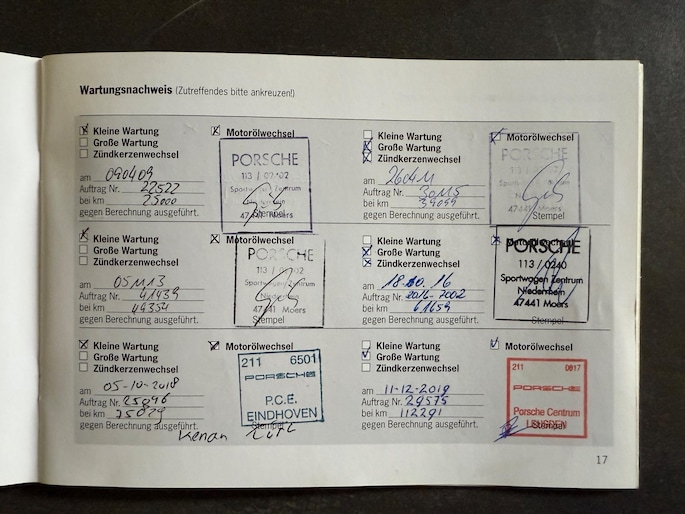 Wartungsnachweis (Zutreffendes bitte ankreuzen!)
Kleine Wartung Motorölwechsel
Große Wartung
Zündkerzenwechsel
am 090409
Auftrag Nr. 22522
bei km 25000
gegen Berechnung ausgeführt.
PORSCHE
113 / 02402
Sportwagen Zentrum
Niederrhein
47441 Moers
Stempel
Kleine Wartung Motorölwechsel
Große Wartung
Zündkerzenwechsel
am 260411
Auftrag Nr. 30115
bei km 39059
gegen Berechnung ausgeführt.
PORSCHE
Sportwagen Zentrum
Niederrhein
47441 Moers
Stempel
Kleine Wartung Motorölwechsel
Große Wartung
Zündkerzenwechsel
am 051113
Auftrag Nr. 41439
bei km 49354
gegen Berechnung ausgeführt.
PORSCHE
Sportwagen Zentrum
Niederrhein
47441 Moers
Stempel
Kleine Wartung
Große Wartung
Zündkerzenwechsel
am 18.10.16
Auftrag Nr. 2016-7002
bei km 61659
gegen Berechnung ausgeführt.
PORSCHE
113 / 0240
Sportwagen Zentrum
Niederrhein
47441 Moers
Kleine Wartung Motorölwechsel
Große Wartung
Zündkerzenwechsel
am 05-10-2018
Auftrag Nr. 25096
bei km 75029
gegen Berechnung ausgeführt.
211 6501
PORSCHE
P.C.E.
EINDHOVEN
Stempel
Kenan
Kleine Wartung Motorölwechsel
Große Wartung
Zündkerzenwechsel
am 11-12-2019
Auftrag Nr. 29575
bei km 112291
gegen Berechnung ausgeführt.
211 0817
PORSCHE
Porsche Centrum
LEUSDEN
Stempel
17